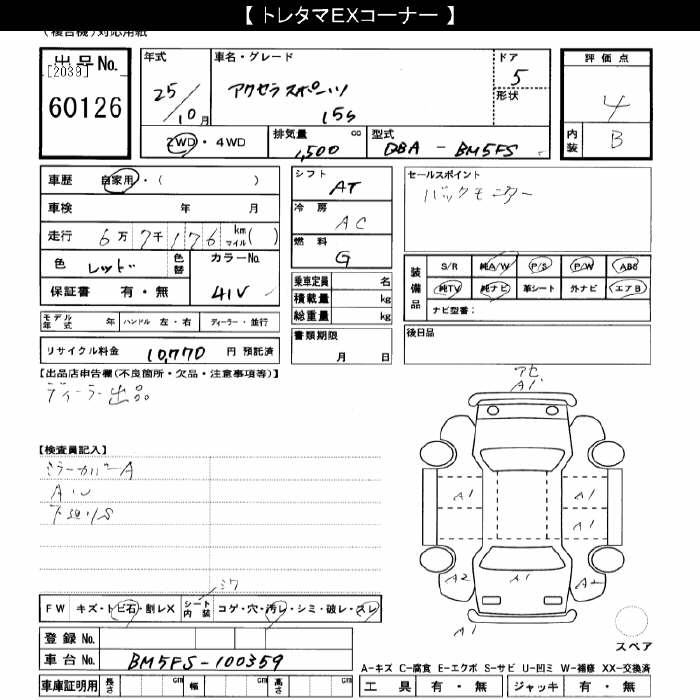 【 トレタマEXコーナー 】
(複合機)対応用紙
出品No.
[2039]
60126
年式
25/10月
車名・グレード
アクセラスポーツ
15S
ドア
5
形状
評価点
4
内装
B
2WD・4WD
排気量 cc
1,500
型式
DBA - BM5FS
車歴 自家用・( )
車検 年 月
走行 6万7千176 km マイル( )
色 レッド 色替
カラーNo.
41V
保証書 有・無
モデル年式 年 ハンドル 左・右 ディーラー・並行
リサイクル料金 10,770 円 預託済
シフト
AT
冷房
AC
燃料
G
乗車定員 名
積載量 kg
総重量 kg
書類期限
月 日
セールスポイント
バックモニター
装備品
S/R 純A/W P/S P/W ABS
純TV 純ナビ 革シート 外ナビ エアB
ナビ型番:
後日品
【出品店申告欄(不良箇所・欠品・注意事項等)】
ディーラー出品
【検査員記入】
ミラーカバーA
下廻りS
アビ
A1
A1
A1
A1
A2
A1
A2
A1
シワ
FW キズ・トビ石・割レX
シート内装 コゲ・穴・汚レ・シミ・破レ・スレ
登録No.
車台No. BM5FS-100359
車庫証明用 長さ cm 幅 cm 高さ cm
スペア
A-キズ C-腐食 E-エクボ S-サビ U-凹ミ W-補修 XX-交換済
工具 有・無 ジャッキ 有・無